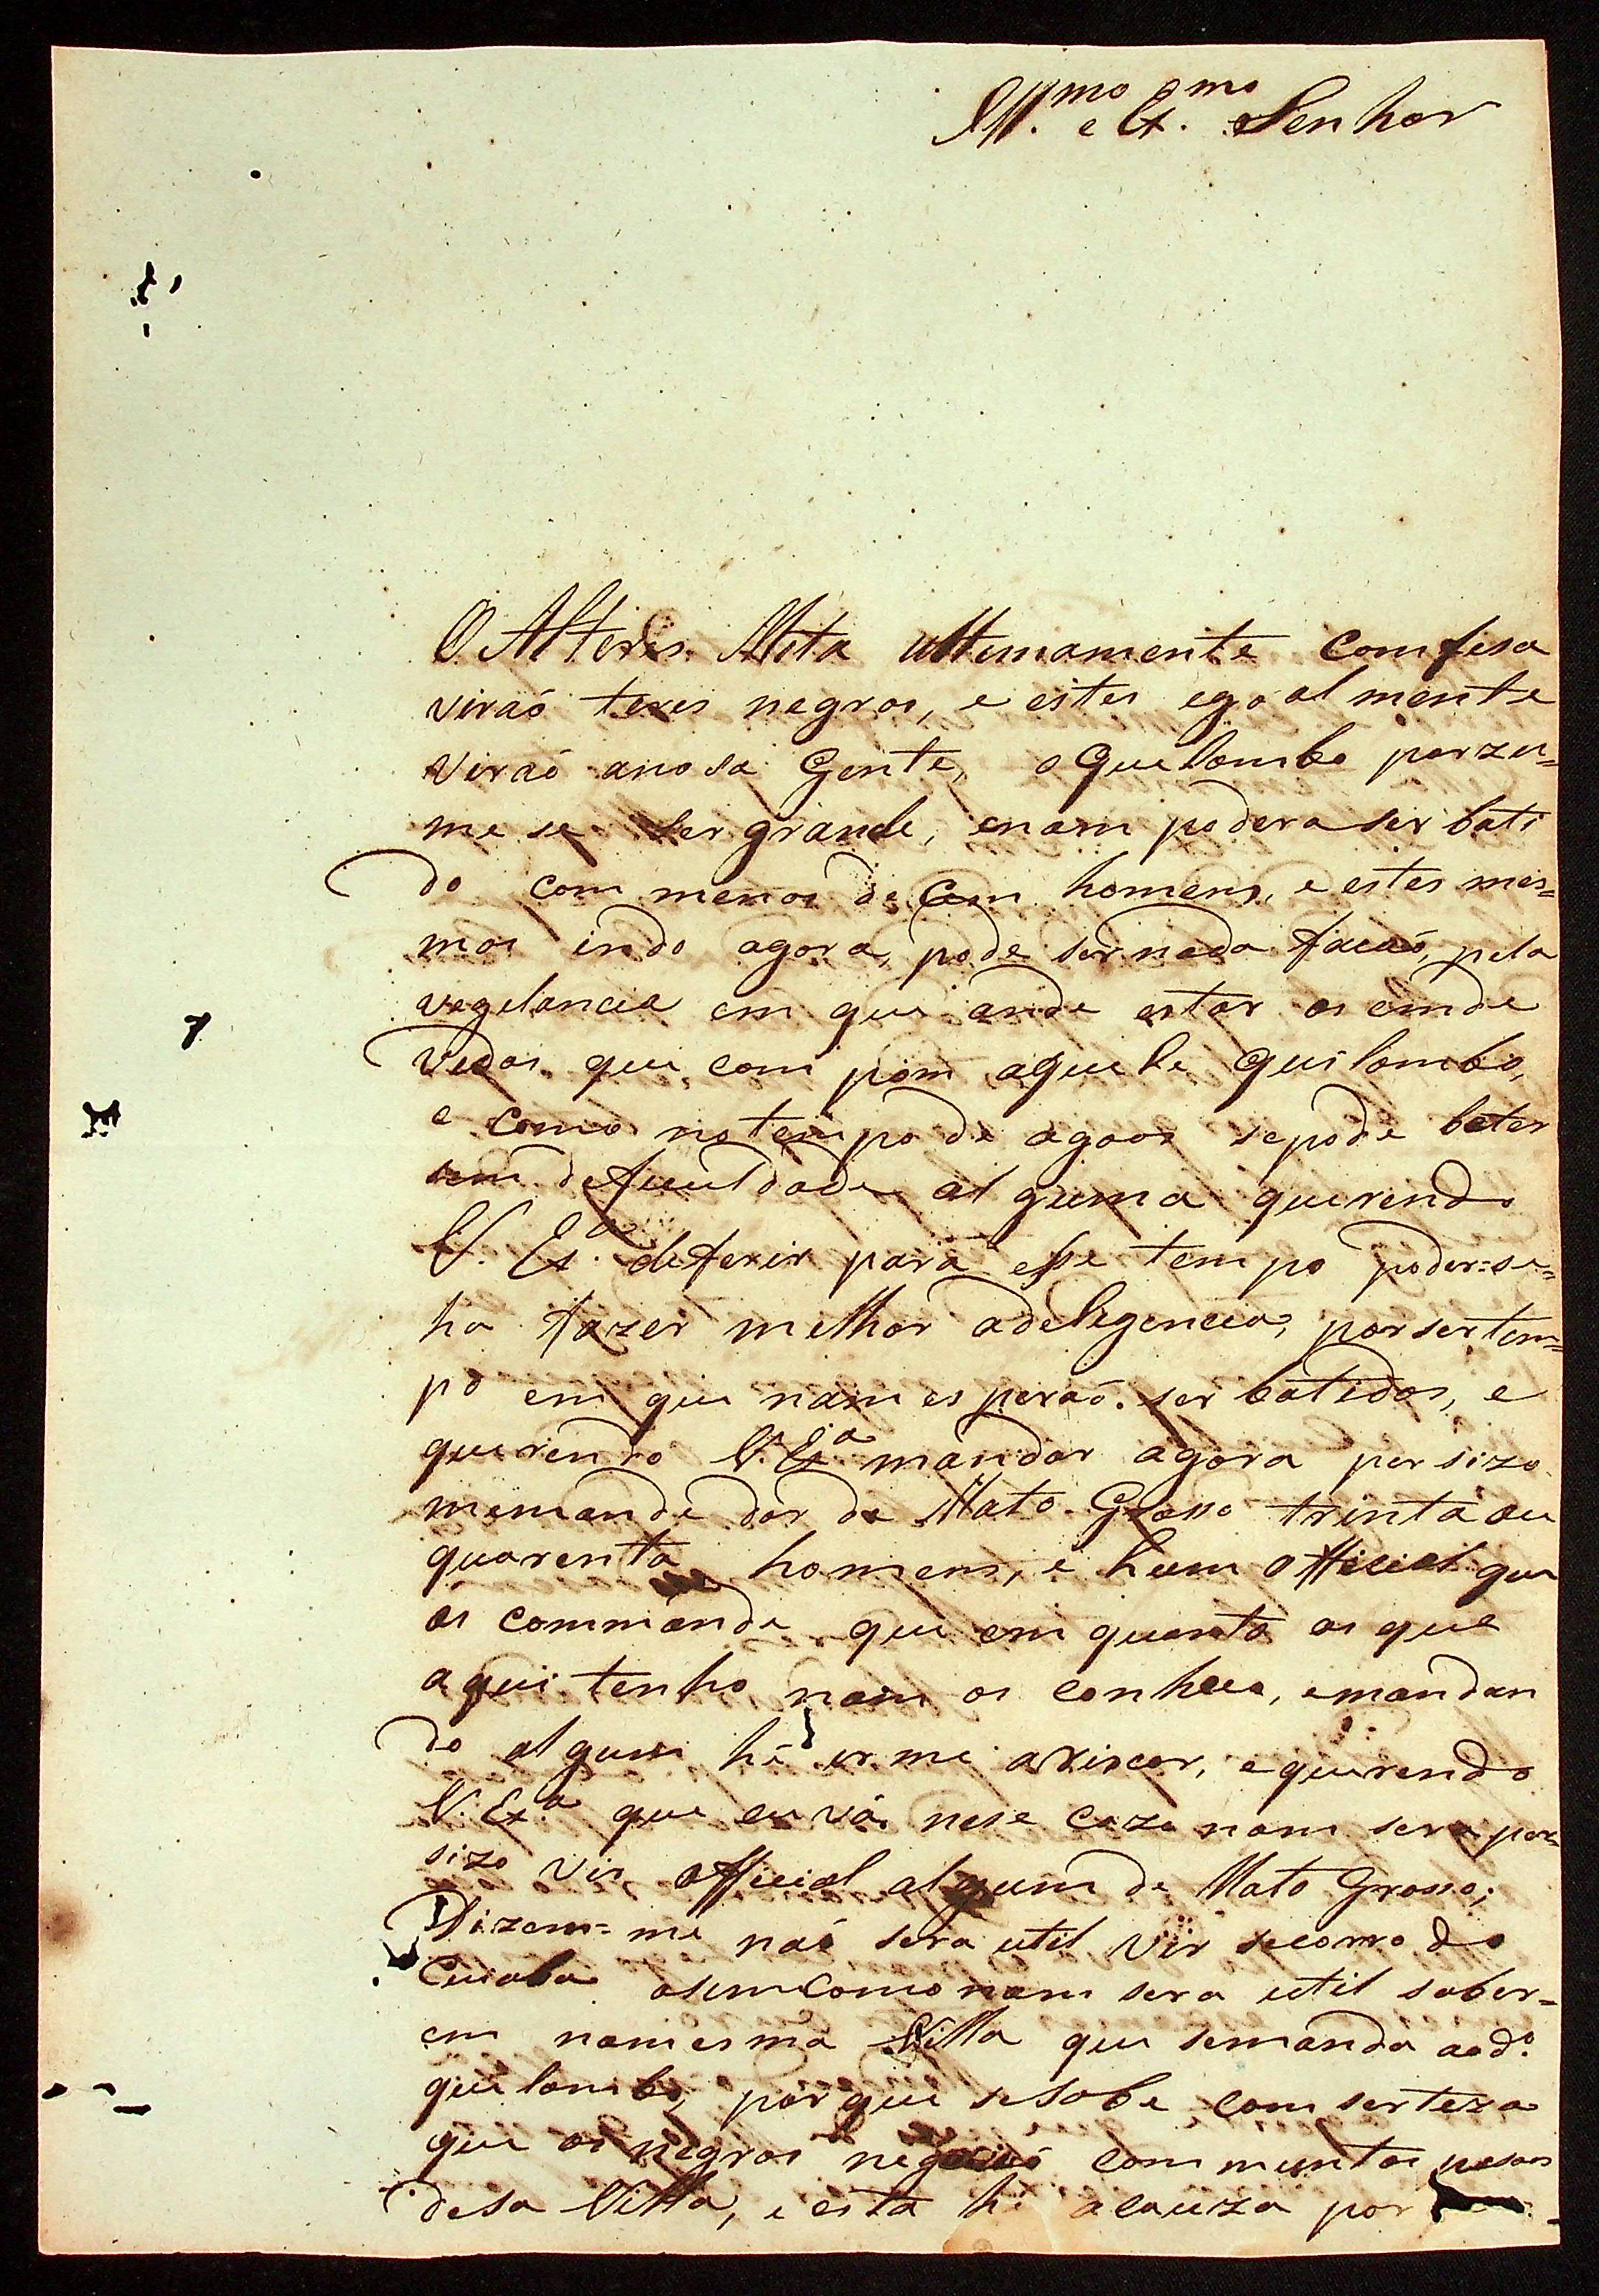 Ill.mo e Ex.mo Senhor
O Alferes Mota ultimamente comfesa
viraó teres negros, e estes egoalmente
viraó anosa Gente, o Quelombo perzu=
me se ser grande, enam podera ser bati
do com menos de Cem homens, e estes mes=
mos indo agora, pode ser nada facaó, pela
vegelancia em que ande estar os emde
vedos que com pom aquele Quilombo,
e como no tempo de agoas se pode bater
sem defeculdade alguma querendo
V. Ex.a deferir para esse tempo poder=se=
ha fazer melhor adelegencia, por ser tem=
po em que nam esperaó ser batidos, e
querendo V. Ex.a mandar agora persizo
memande dar de Mato Grosso trinta ou
quarenta homens, e hum official que
os commande que em quanto os que
aqui tenho nam os conheco, emandan
do algum hé ir me ariscar, equerendo
V. Ex.a que eu vá nese cazo nam sera per=
sizo vir official algum de Mato Grosso;
Dizem=me naó sera util vir secorro do
Cuiaba asim como nam sera util saber=
em namesma Villa que semanda ao d.o
quilombo, por que se sabe com serteza
que os negros negociaó com muntas pesoas
desa Villa, e esta hé acauza por